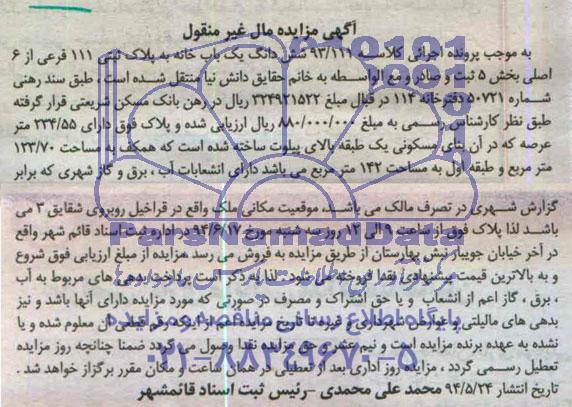 آگهی مزایده مال غیر منقول
به موجب پرونده اجرائی کلاسه ۹۳/۱۱۹ شش دانگ یک باب خانه به پلاک ثبتی ۱۱۱ فرعی از ۶
اصلی بخش ۵ ثبت و صادر و مع الواسطه به خانم حقایق دانش نیا منتقل شده است ، طبق سند رهنی
شماره ۵۰۷۲۱ دفترخانه ۱۱۴ در قبال مبلغ ۳۲۴۹۲۱۵۲۲ ریال در رهن بانک مسکن شریعتی قرار گرفته
طبق نظر کارشناس رسمی به مبلغ ۸۸۰/۰۰۰/۰۰۰ ریال ارزیابی شده و پلاک فوق دارای ۲۳۴/۵۵ متر
عرصه که در آن بنای مسکونی یک طبقه بالای پیلوت ساخته شده است که همکف به مساحت ۱۳۳/۷۰
متر مربع و طبقه اول به مساحت ۱۴۲ متر مربع می باشد دارای انشعابات آب ، برق و گاز شهری که برابر
گزارش شهری در تصرف مالک می باشد. موقعیت مکانی ملک واقع در قراخیل روبروی شقایق ۳ می
باشد لذا پلاک فوق از ساعت ۹ الی ۱۲ روز سه شنبه مورخ ۹۴/۶/۱۷ در اداره ثبت اسناد قائم شهر واقع
در آخر خیابان جویبار نبش بهارستان از طریق مزایده به فروش می رسد مزایده از مبلغ ارزیابی فوق شروع
و به بالاترین قیمت پیشنهادی نقدا فروخته می شود. لذا به ذکر است پرداخت بدهی های مربوط به آب
، برق ، گاز اعم از انشعاب و یا حق اشتراک و مصرف در صورتی که مورد مزایده دارای آنها باشد و نیز
بدهی های مالیاتی و عوارض شهرداری و غیره تا تاریخ مزایده اعم از اینکه رقم قطعی آن معلوم شده و یا
نشده به عهده برنده مزایده است و نیم عشر و حق مزایده نقدا وصول می گردد ضمنا چنانچه روز مزایده
تعطیل رسمی گردد ، مزایده روز اداری بعد از تعطیلی در همان ساعت و مکان مقرر برگزار خواهد شد .
تاریخ انتشار ۹۴/۵/۲۴ محمد علی محمدی -رئیس ثبت اسناد قائمشهر
ParsNamadData
پایگاه اطلاع رسانی مناقصه و مزایده
۰۲۱-۸۸۳۴۹۶۷۰-۵